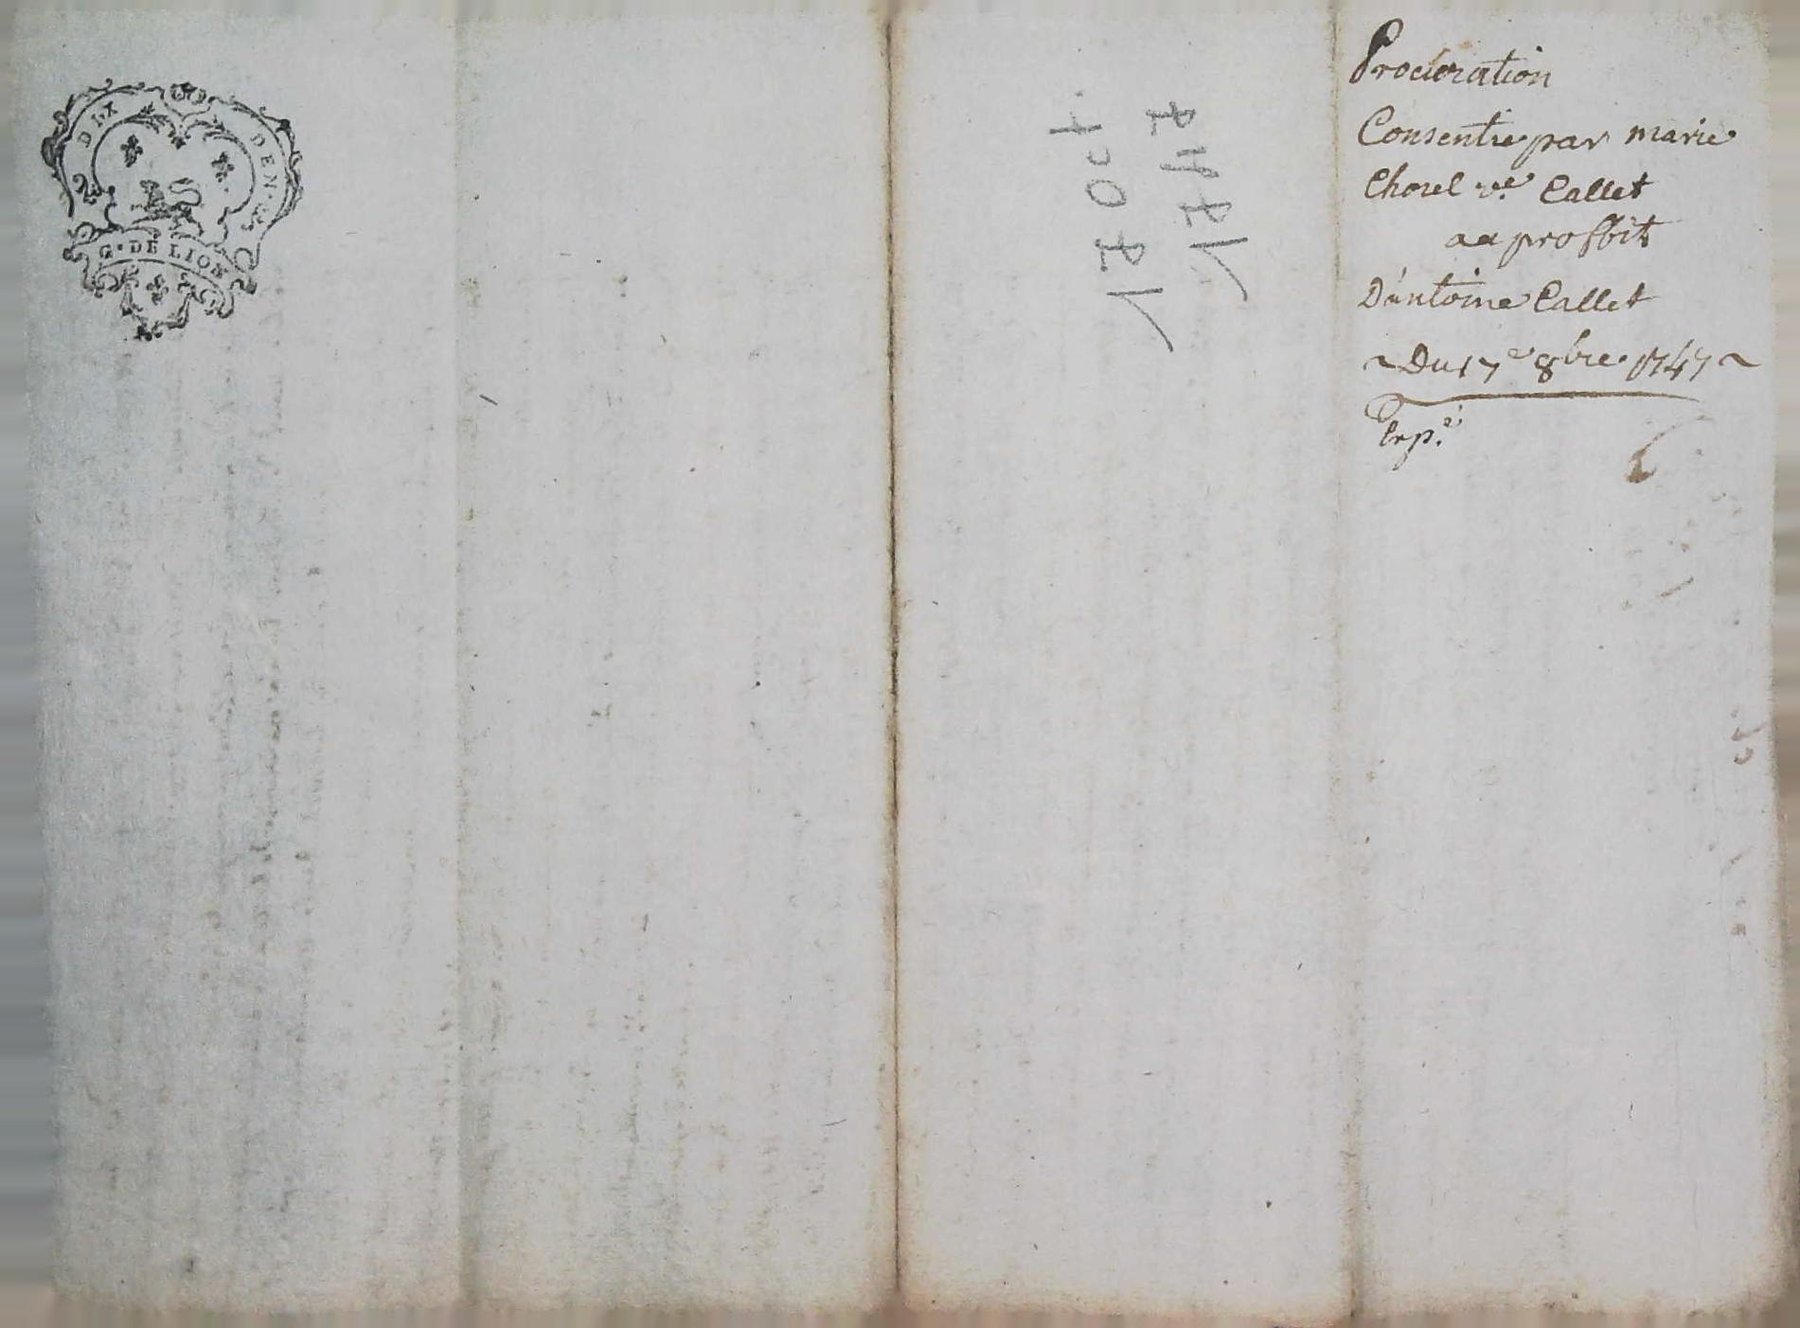 DIX DEN.ERS
G. DE LION
1747
1704
Procuration
Consentie par marie
Chorel ve. Callet
au proffit
D'antoine Callet
~ Du 17e 8bre 1747 ~
Exp.é